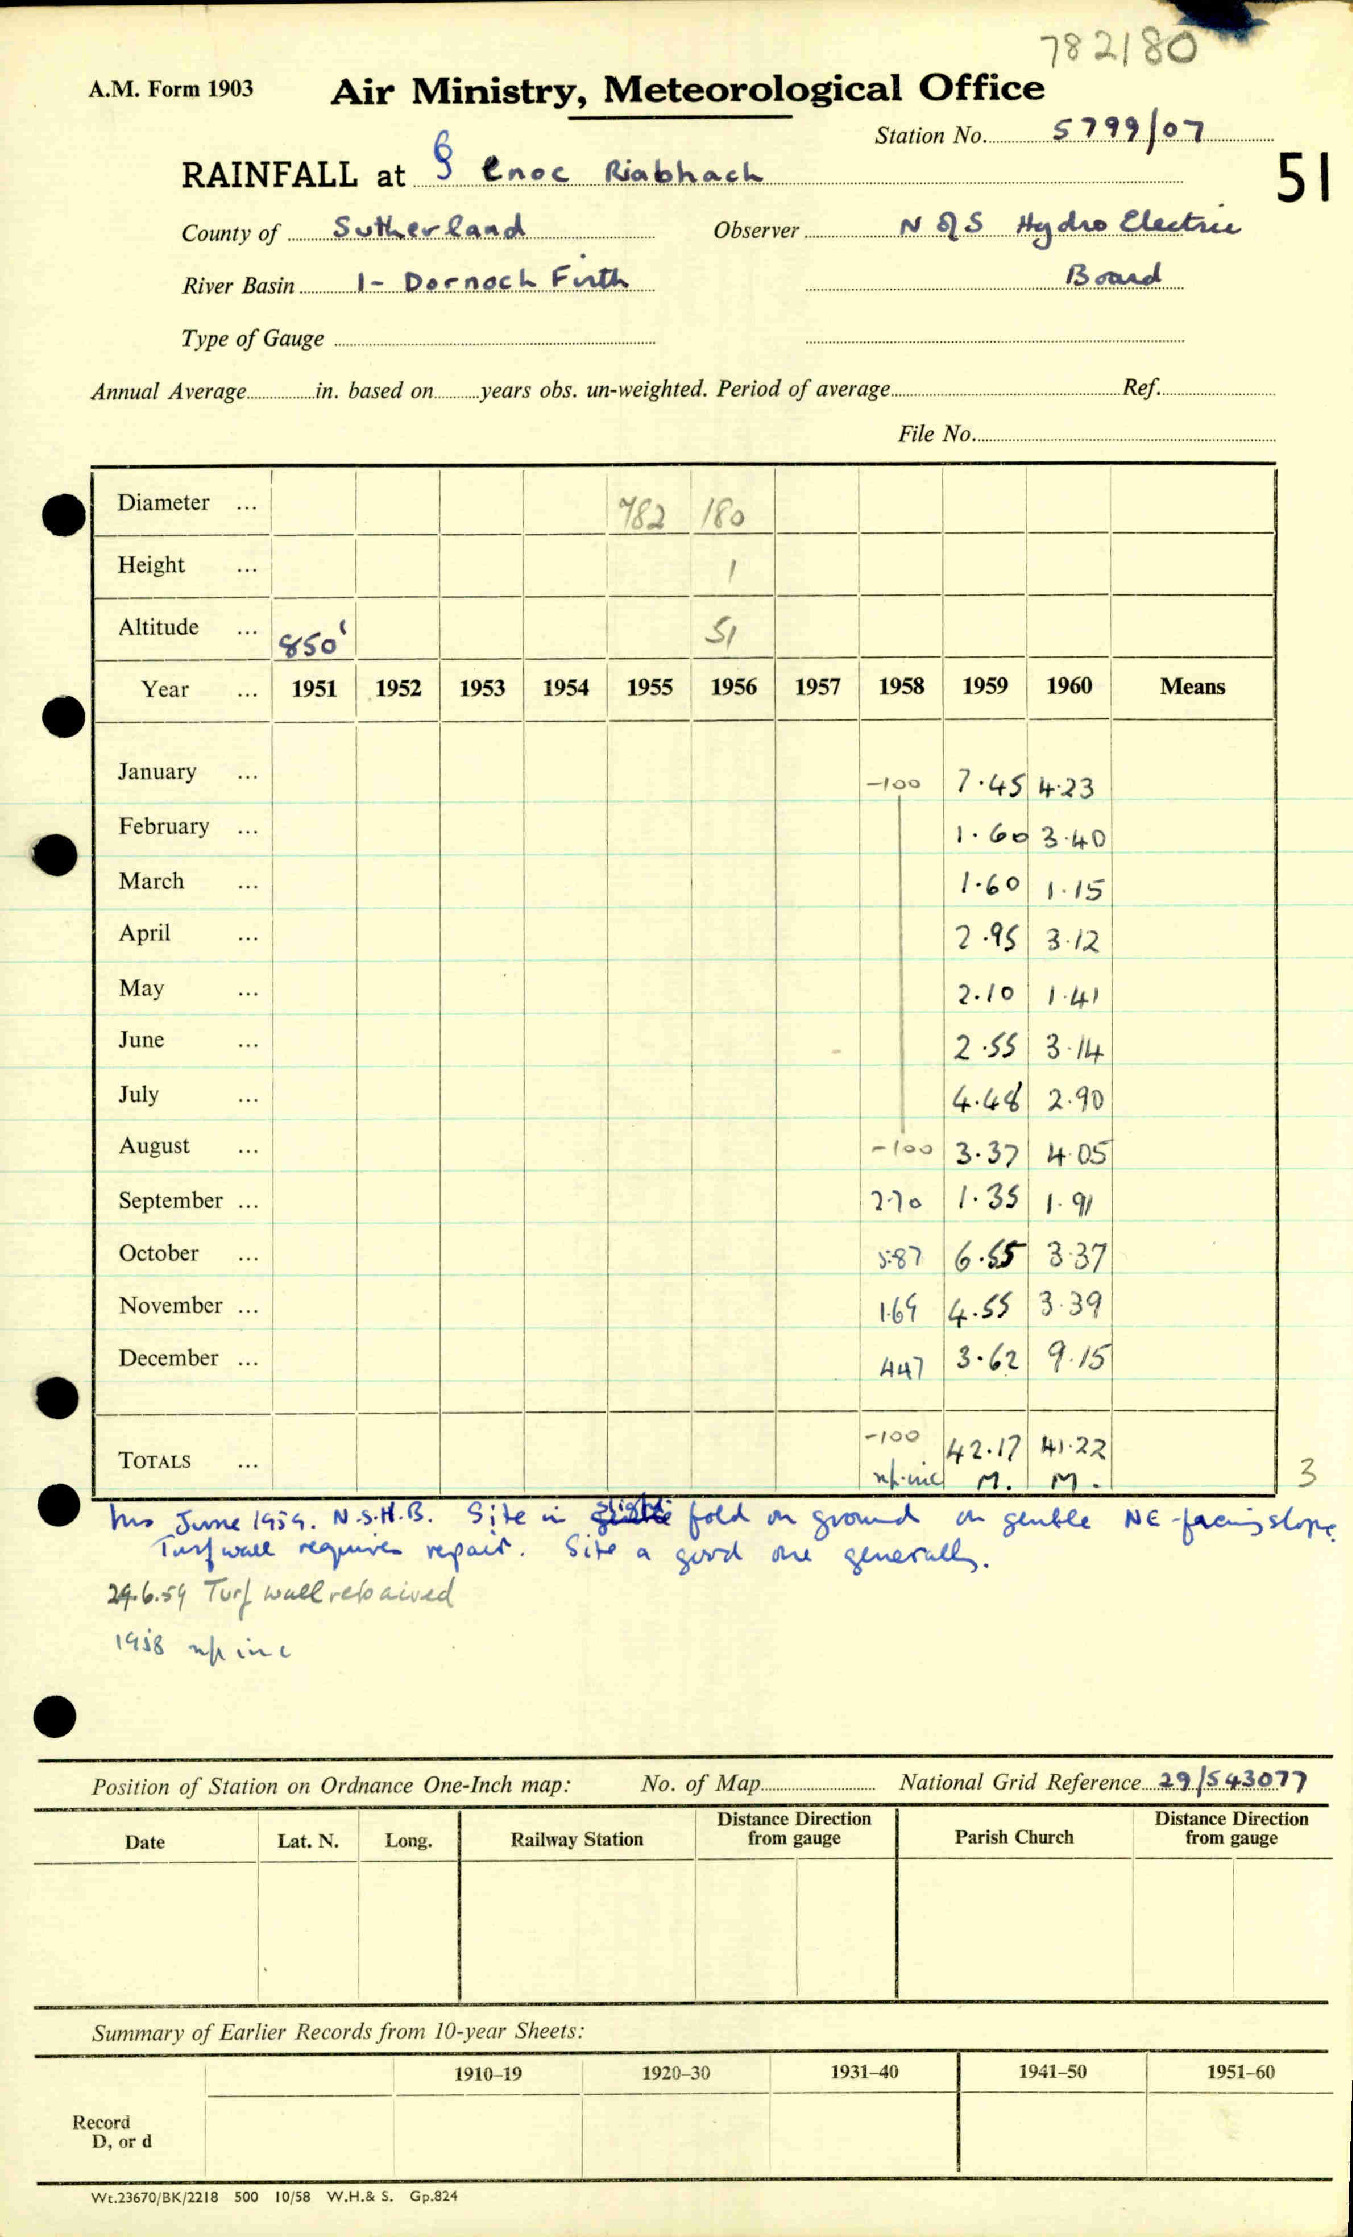 782180
A.M. Form 1903
Air Ministry, Meteorological Office
Station No. 5799/07
RAINFALL at § Cnoc Riabhach
51
County of Sutherland Observer N of S Hydro Electric
River Basin 1- Dornoch Firth Board
Type of Gauge
Annual Average in. based on years obs. un-weighted. Period of average Ref.
File No.
Diameter ... 782 180
Height ... 1
Altitude ... 850' 51
Year ... 1951 1952 1953 1954 1955 1956 1957 1958 1959 1960 Means
January ... -100 7.45 4.23
February ... 1.60 3.40
March ... 1.60 1.15
April ... 2.95 3.12
May ... 2.10 1.41
June ... 2.55 3.14
July ... 4.48 2.90
August ... -100 3.37 4.05
September ... 2.70 1.35 1.91
October ... 5.87 6.55 3.37
November ... 1.69 4.55 3.39
December ... 447 3.62 9.15
TOTALS ... -100 42.17 41.22
np.inc M. M. 3
Ins June 1959. N.S.H.B. Site in slight fold in ground on gentle NE-facing slope.
Turf wall requires repair. Site a good one generally.
29.6.59 Turf wall repaired
1958 np inc
Position of Station on Ordnance One-Inch map: No. of Map National Grid Reference 29/543077
Date Lat. N. Long. Railway Station Distance Direction from gauge Parish Church Distance Direction from gauge
Summary of Earlier Records from 10-year Sheets:
1910–19 1920–30 1931–40 1941–50 1951–60
Record
D, or d
Wt.23670/BK/2218 500 10/58 W.H.& S. Gp.824